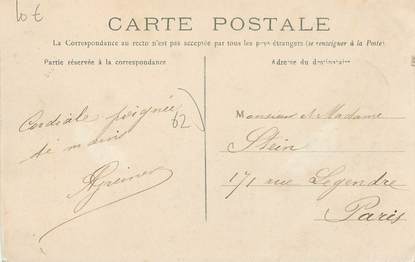 10€
CARTE POSTALE
La Correspondance au recto n'est pas acceptée par tous les pays étrangers (se renseigner à la Poste)
Partie réservée à la correspondance
Adresse du destinataire
Cordiale poignée
de mains
62
Monsieur et Madame
Stein
171 rue Legendre
Paris